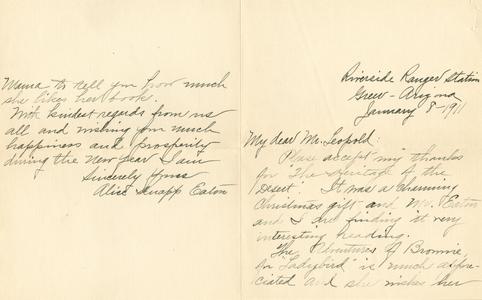 Riverside Ranger Station
Greer - Arizona
January 8-1911
My dear Mr. Leopold:
Please accept my thanks
for "The Heritage of the
Desert". It was a charming
Christmas gift and Mr. Eaton
and I are finding it very
interesting reading.
The Adventures of Brownie,
or "Ladybird" is much appre-
ciated and she wishes her
Mama to tell you how much
she likes her book.
With kindest regards from us
all and wishing you much
happiness and prosperity
during the New Year I am
Sincerely Yours
Alice Knapp Eaton